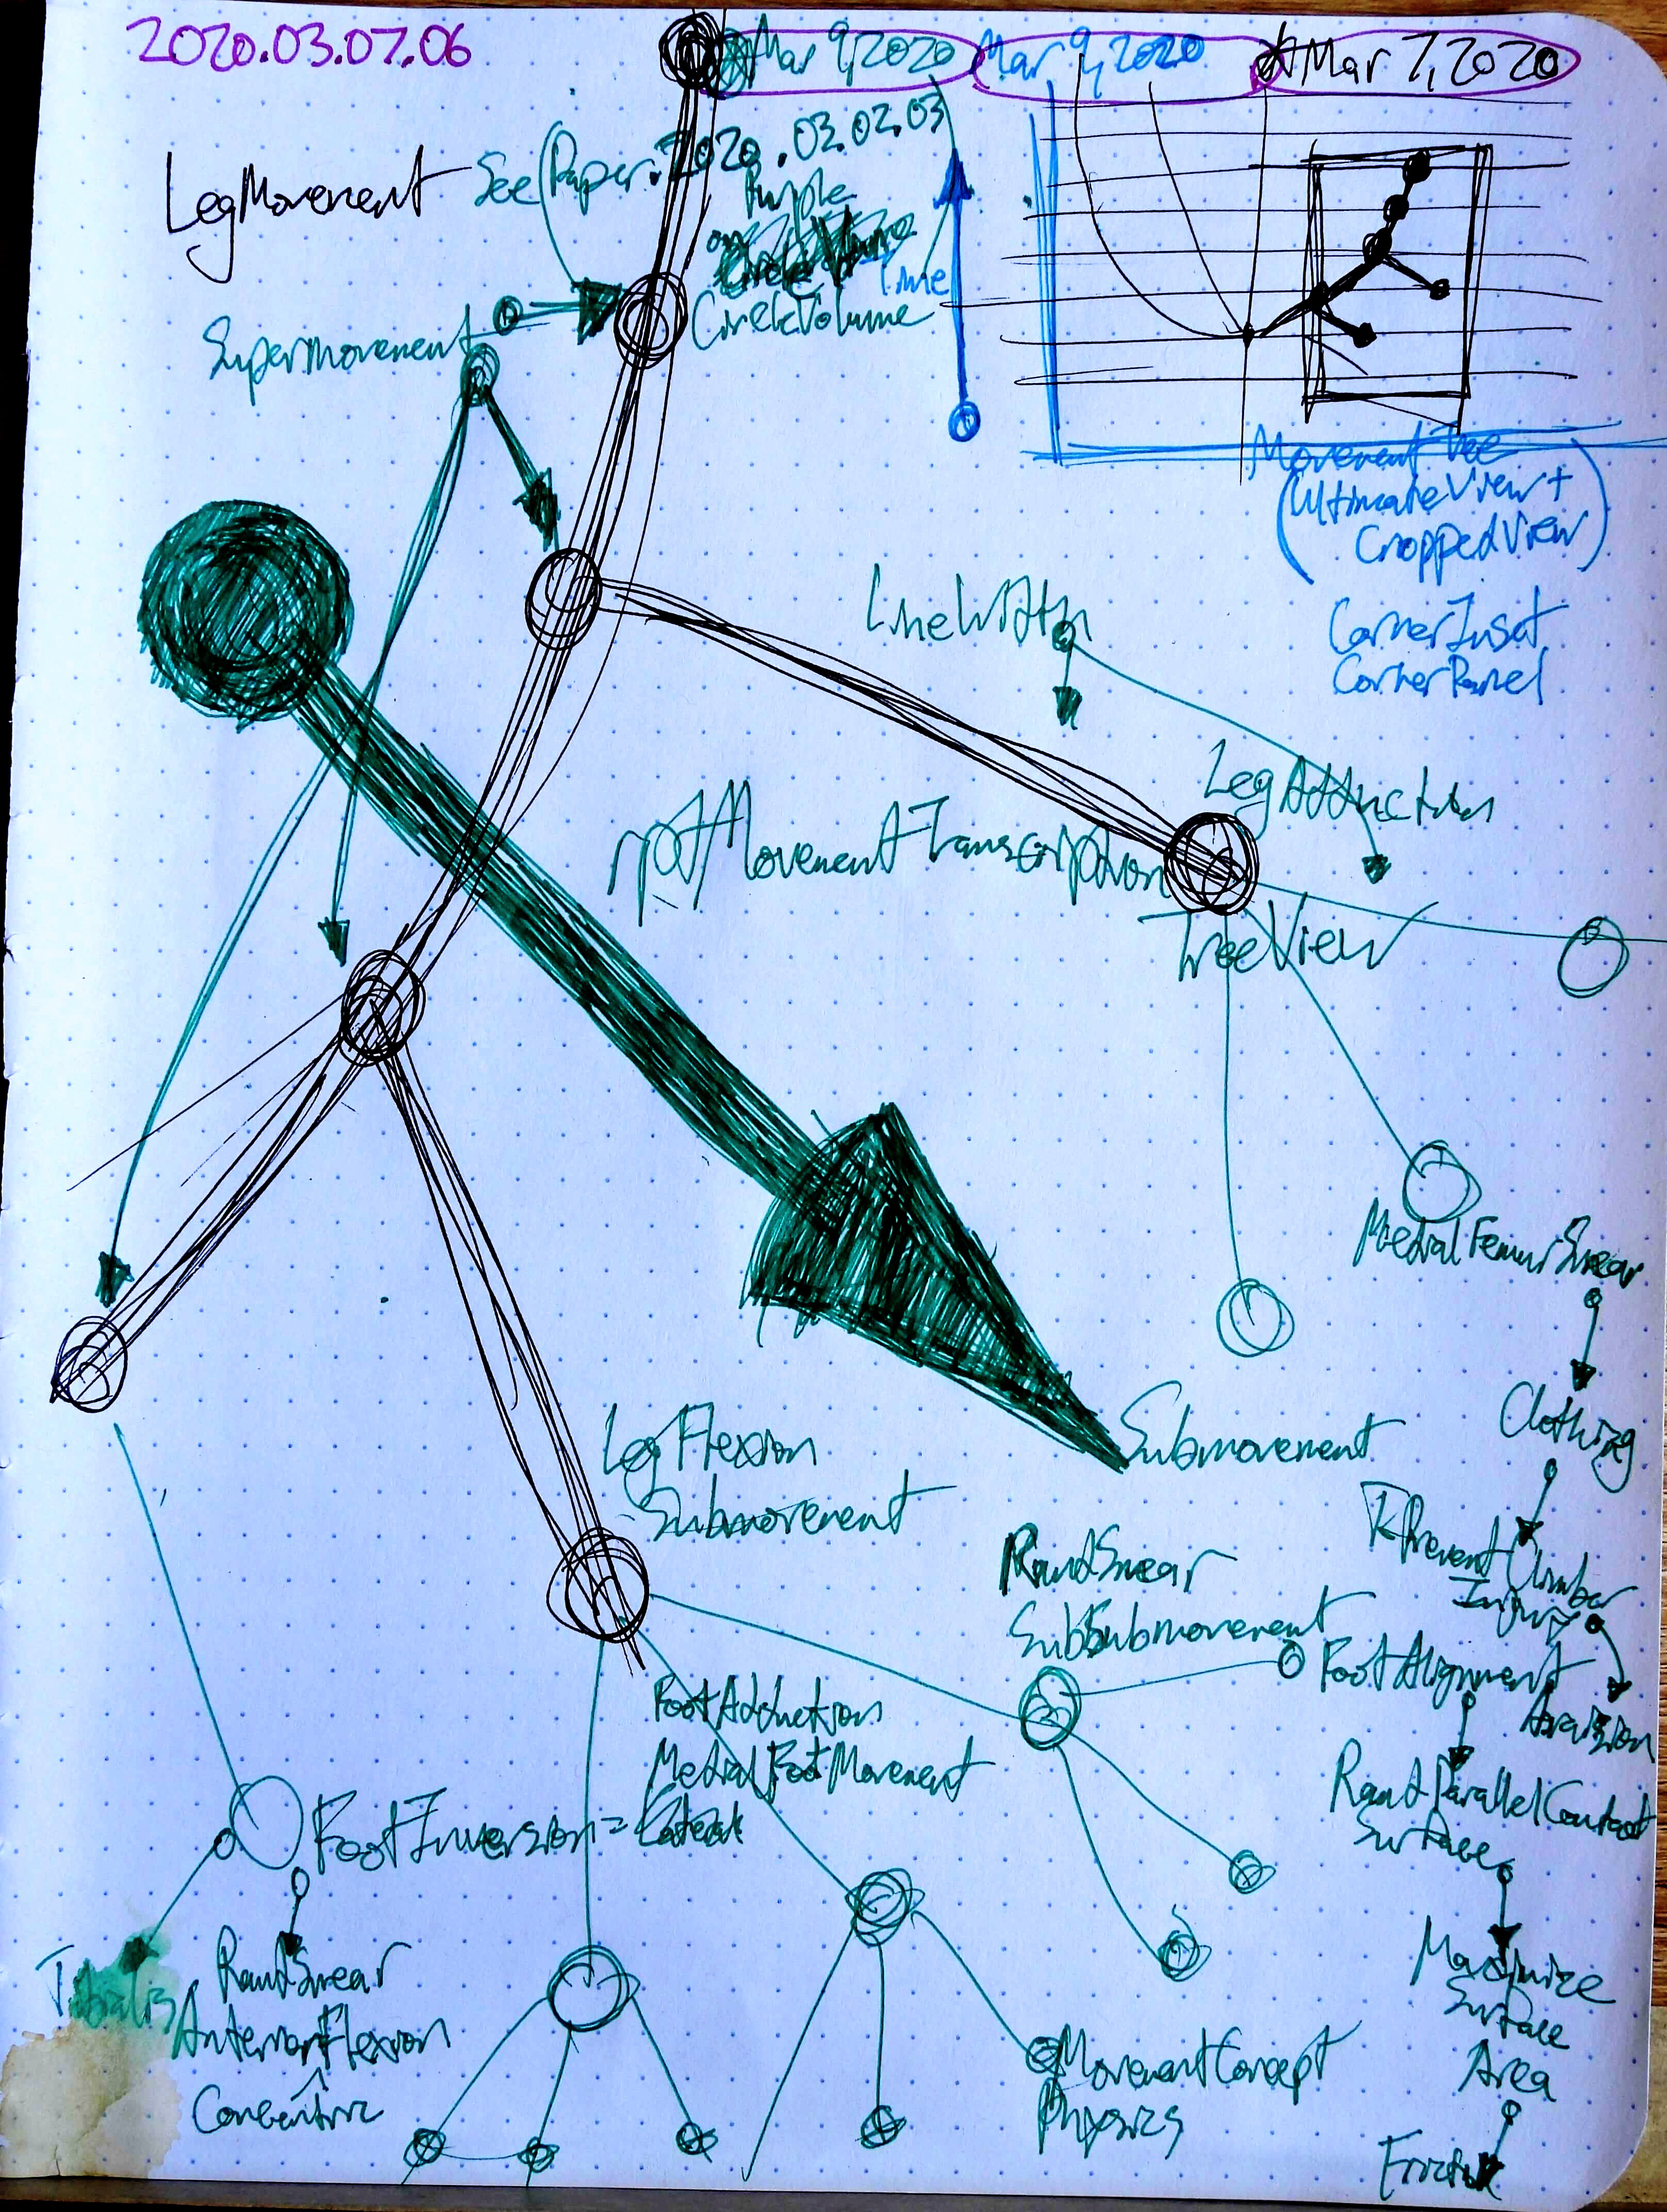 2020.03.07.06
Mar 9, 2020
Mar 9, 2020
Mar 7, 2020
LegMovement
See Paper: 2020.03.02.03
Purple
on
CircleVolume
Time
Supermovement
Movement Tree
(UltimateView+
CroppedView)
CornerInset
CornerPanel
LineWidth
LegAdduction
MovementTranscription
TreeView
MedialFemurSmear
Clothing
PreventClimber
Injury
Abrasion
Submovement
LegFlexion
Submovement
RandSmear
SubSubmovement
FootAlignment
RandParallelContact
Surface
Maximize
Surface
Area
Friction
FootAdduction
MedialFootMovement
FootInversion =
Tibialis
RandSmear
AnteriorFlexion
Concentric
MovementConcept
Physics